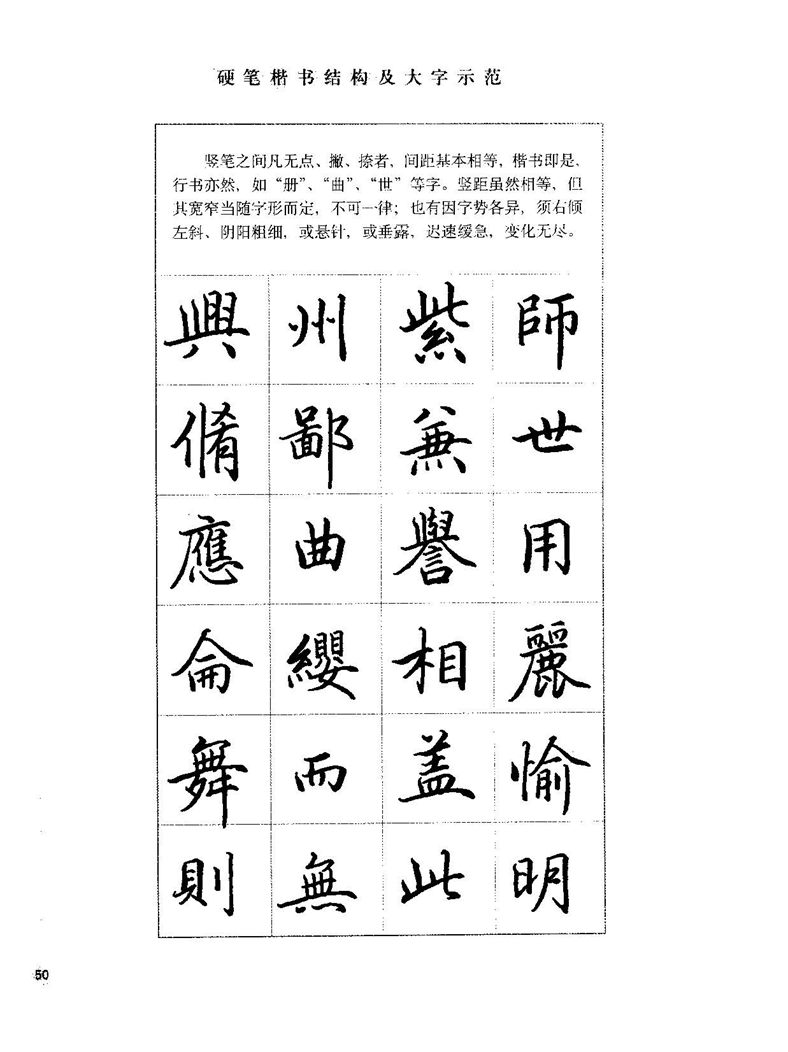 硬笔楷书结构及大字示范
竖笔之间凡无点、撇、捺者，间距基本相等，楷书即是，
行书亦然，如“册”、“曲”、“世”等字。竖距虽然相等，但
其宽窄当随字形而定，不可一律；也有因字势各异，须右倾
左斜、阴阳粗细，或悬针，或垂露，迟速缓急，变化无尽。
師世用麗愉明
紫兼譽相盖此
州鄙曲纓而無
興脩應侖舞則
50